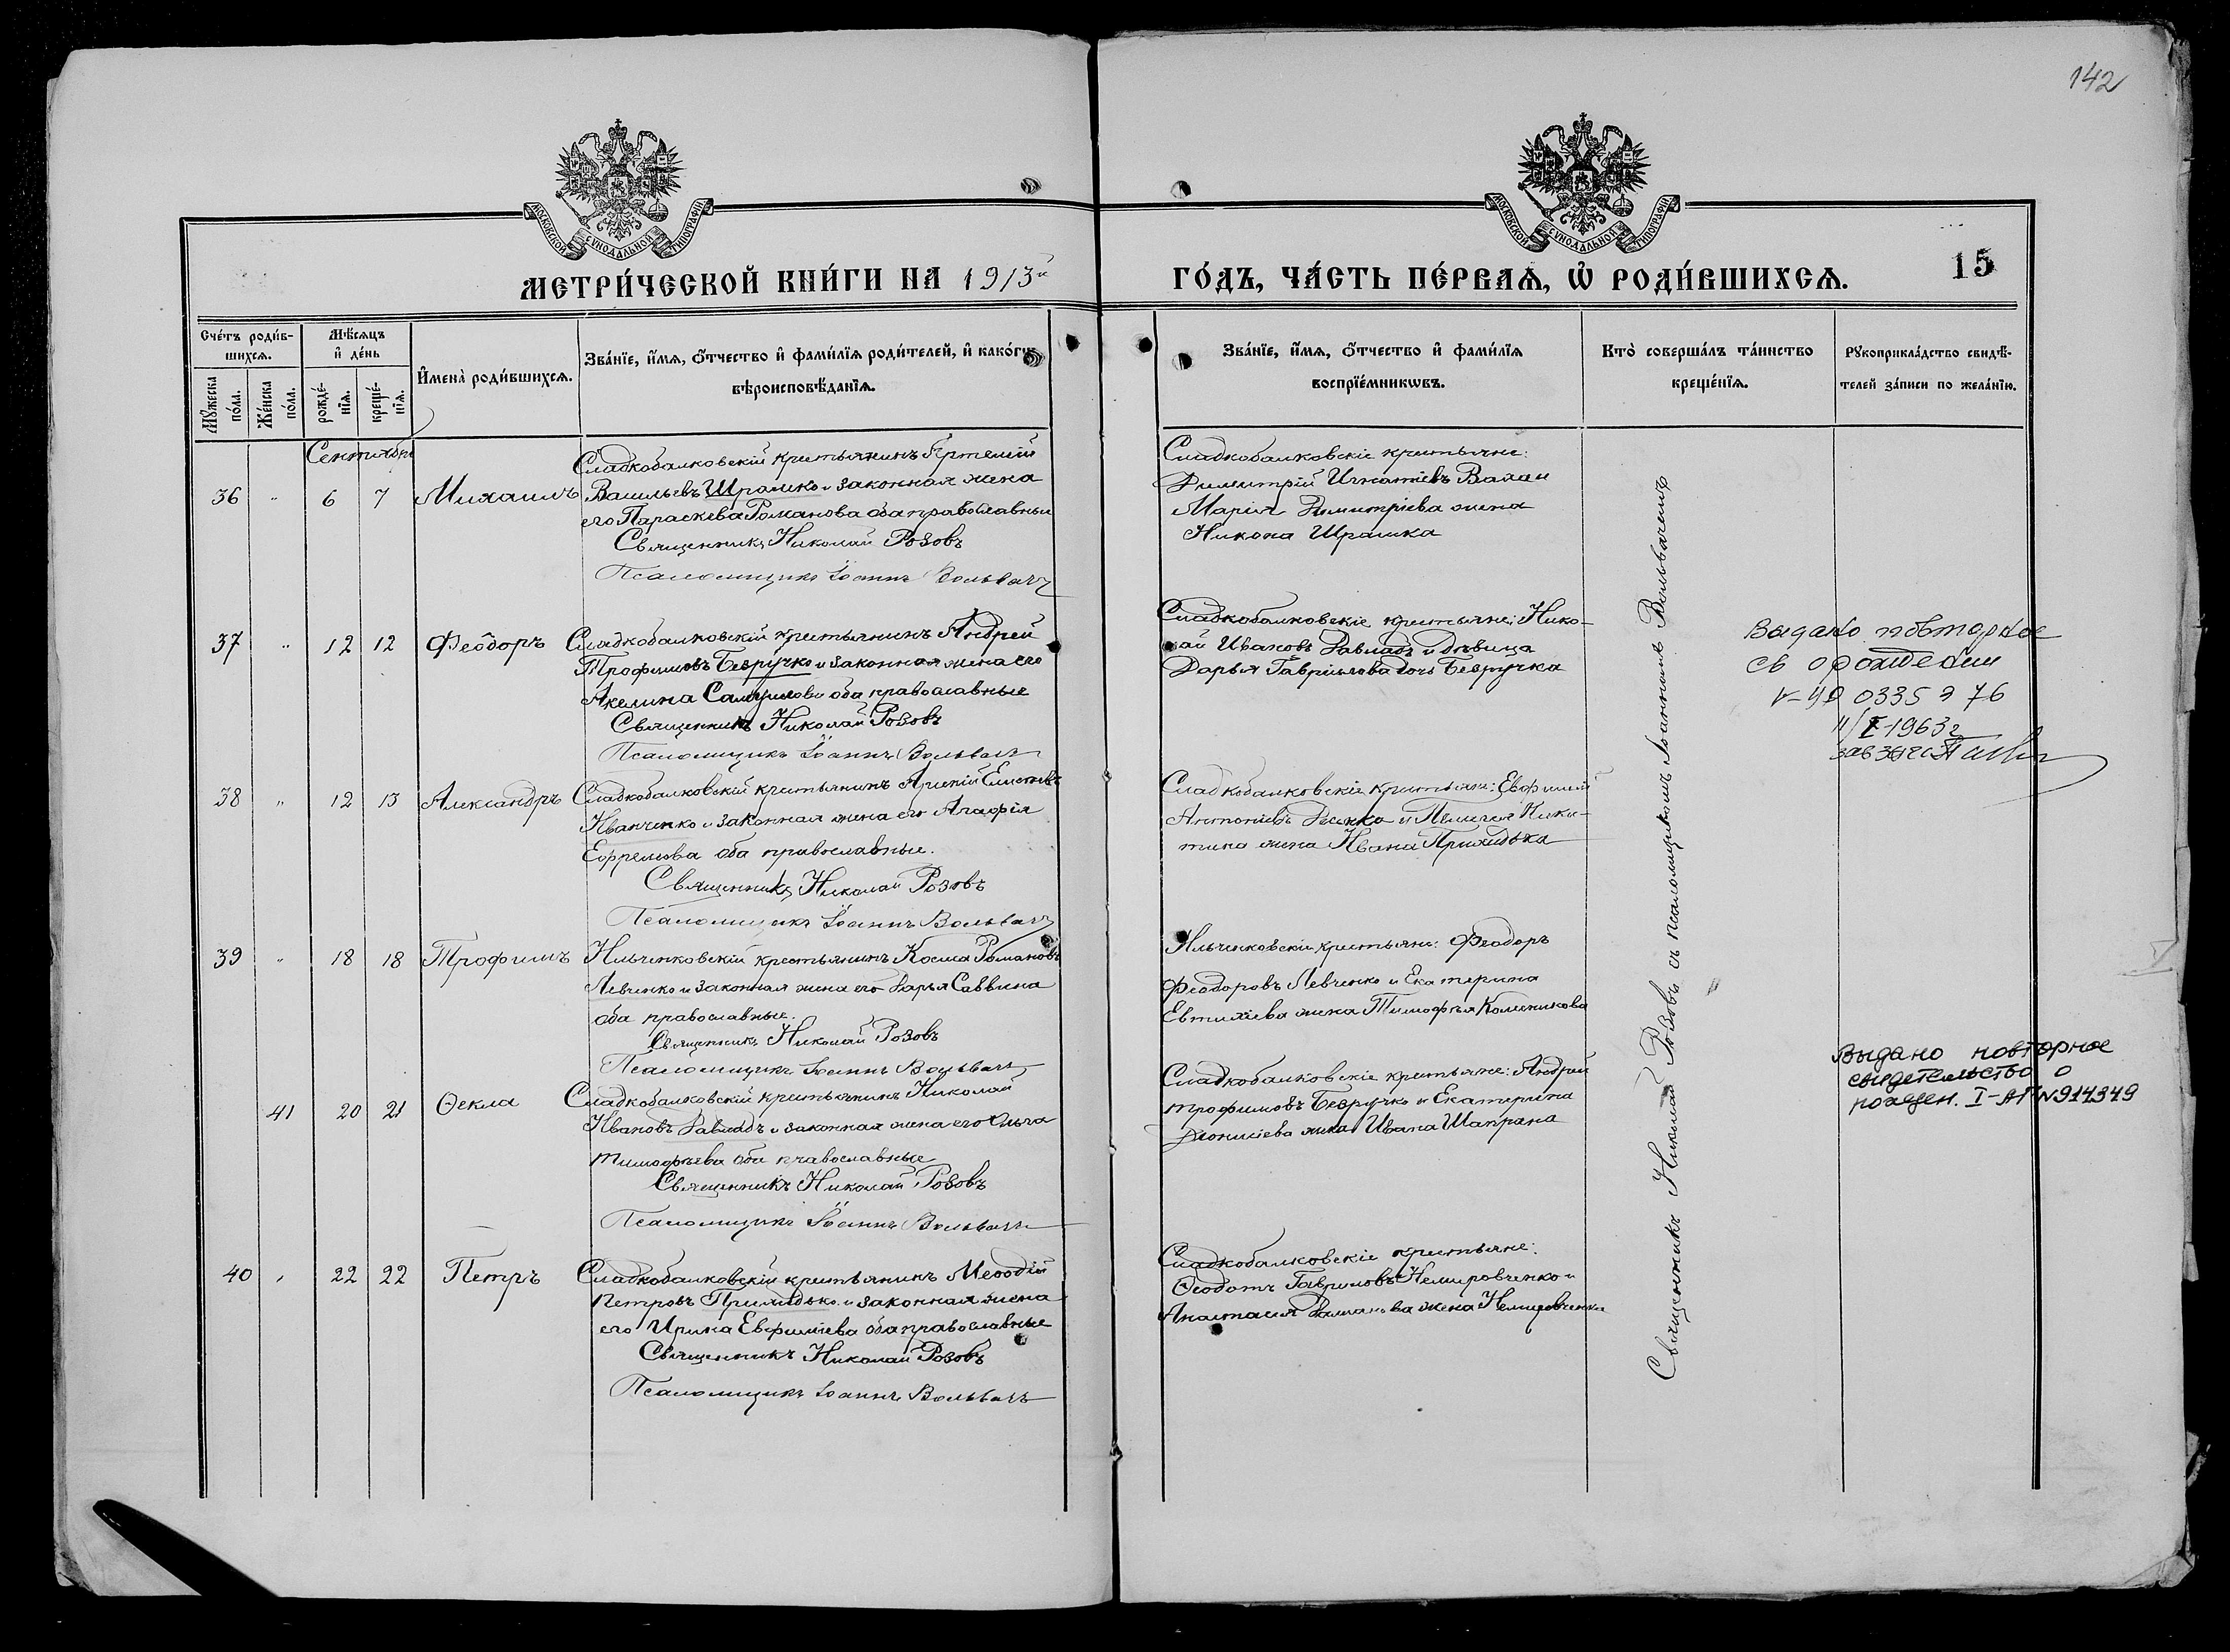 142
МОСКОВСКОЙ СѴНОДАЛЬНОЙ ТИПОГРАФІИ
МОСКОВСКОЙ СѴНОДАЛЬНОЙ ТИПОГРАФІИ
МЕТРИ́ЧЕСКОЙ КНИ́ГИ НА 1913й
ГО́ДЪ, ЧА́СТЬ ПЕ́РВАѦ, Ѽ РОДИ́ВШИХСѦ.
15
Сче́тъ роди́в-
шихсѧ.
Мꙋ́жеска
по́ла.
Же́нска
по́ла.
Мѣ́сѧцъ
и҆ де́нь
рожде́-
нїѧ.
креще́-
нїѧ.
И҆мена̀ роди́вшихсѧ.
Зва́нїе, и҆́мѧ, ѻ҆́тчество и҆ фами́лїѧ роди́телей, и҆ како́гѡ
вѣроисповѣ́данїѧ.
Зва́нїе, и҆́мѧ, ѻ҆́тчество и҆ фами́лїѧ
воспрїе́мникѡвъ.
Кто̀ соверша́лъ та́инство
креще́нїѧ.
Рꙋкоприкла́дство свидѣ́-
телей за́писи по жела́нїю.
Сентябрь
36 " 6 7 Михаилъ
Сладкобалковскій крестьянинъ Артемій
Васильевъ Шрамко и законная жена
его Параскева Романова оба православные
Священникъ Николай Розовъ
Псаломщикъ Іоаннъ Вольвачъ
Сладкобалковскіе крестьяне:
Димитрій Игнатіевъ и
Марія Димитріева жена
Никона Шрамка
37 " 12 12 Феодоръ
Сладкобалковскій крестьянинъ Андрей
Трофимовъ Безручко и законная жена его
Акелина Самуилова оба православные
Священникъ Николай Розовъ
Псаломщикъ Іоаннъ Вольвачъ
Сладкобалковскіе крестьяне: Нико-
лай Ивановъ и дѣвица
Дарья Гавріилова дочь Безручка
Выдано повторное
св о рождении
0335276
11/I-1963г
зав загс
38 " 12 13 Александръ
Сладкобалковскій крестьянинъ
Иванченко и законная жена его Агафія
Ефремова оба православные.
Священникъ Николай Розовъ
Псаломщикъ Іоаннъ Вольвачъ
Сладкобалковскіе крестьяне: Евфимій
Антоніевъ и Пелагія Ники-
тина жена Ивана Прихидька
39 " 18 18 Трофимъ
Ильченковскій крестьянинъ Косма Романовъ
Левченко и законная жена его Дарья Саввина
оба православные.
Священникъ Николай Розовъ
Псаломщикъ Іоаннъ Вольвачъ
Ильченковскіе крестьяне: Феодоръ
Феодоровъ Левченко и Екатерина
Евтихіева жена Тимофея Колесникова
41 20 21 Ѳекла
Сладкобалковскій крестьянинъ Николай
Ивановъ и законная жена его Ольга
Тимофѣева оба православные
Священникъ Николай Розовъ
Псаломщикъ Іоаннъ Вольвачъ
Сладкобалковскіе крестьяне: Андрей
Трофимовъ Безручко и Екатерина
Діонисіева жена Ивана Шапрана
Выдано повторное
свидетельство о
рожден. I-АП №914349
40 " 22 22 Петръ
Сладкобалковскій крестьянинъ Меѳодій
Петровъ Прихидько и законная жена
его Ирина Евфиміева оба православные
Священникъ Николай Розовъ
Псаломщикъ Іоаннъ Вольвачъ
Сладкобалковскіе крестьяне:
Ѳеодотъ Гавриловъ Немировченко и
Анастасія Романова жена Немировченка
Священникъ Николай Розовъ съ псаломщикомъ Іоанномъ Вольвачемъ